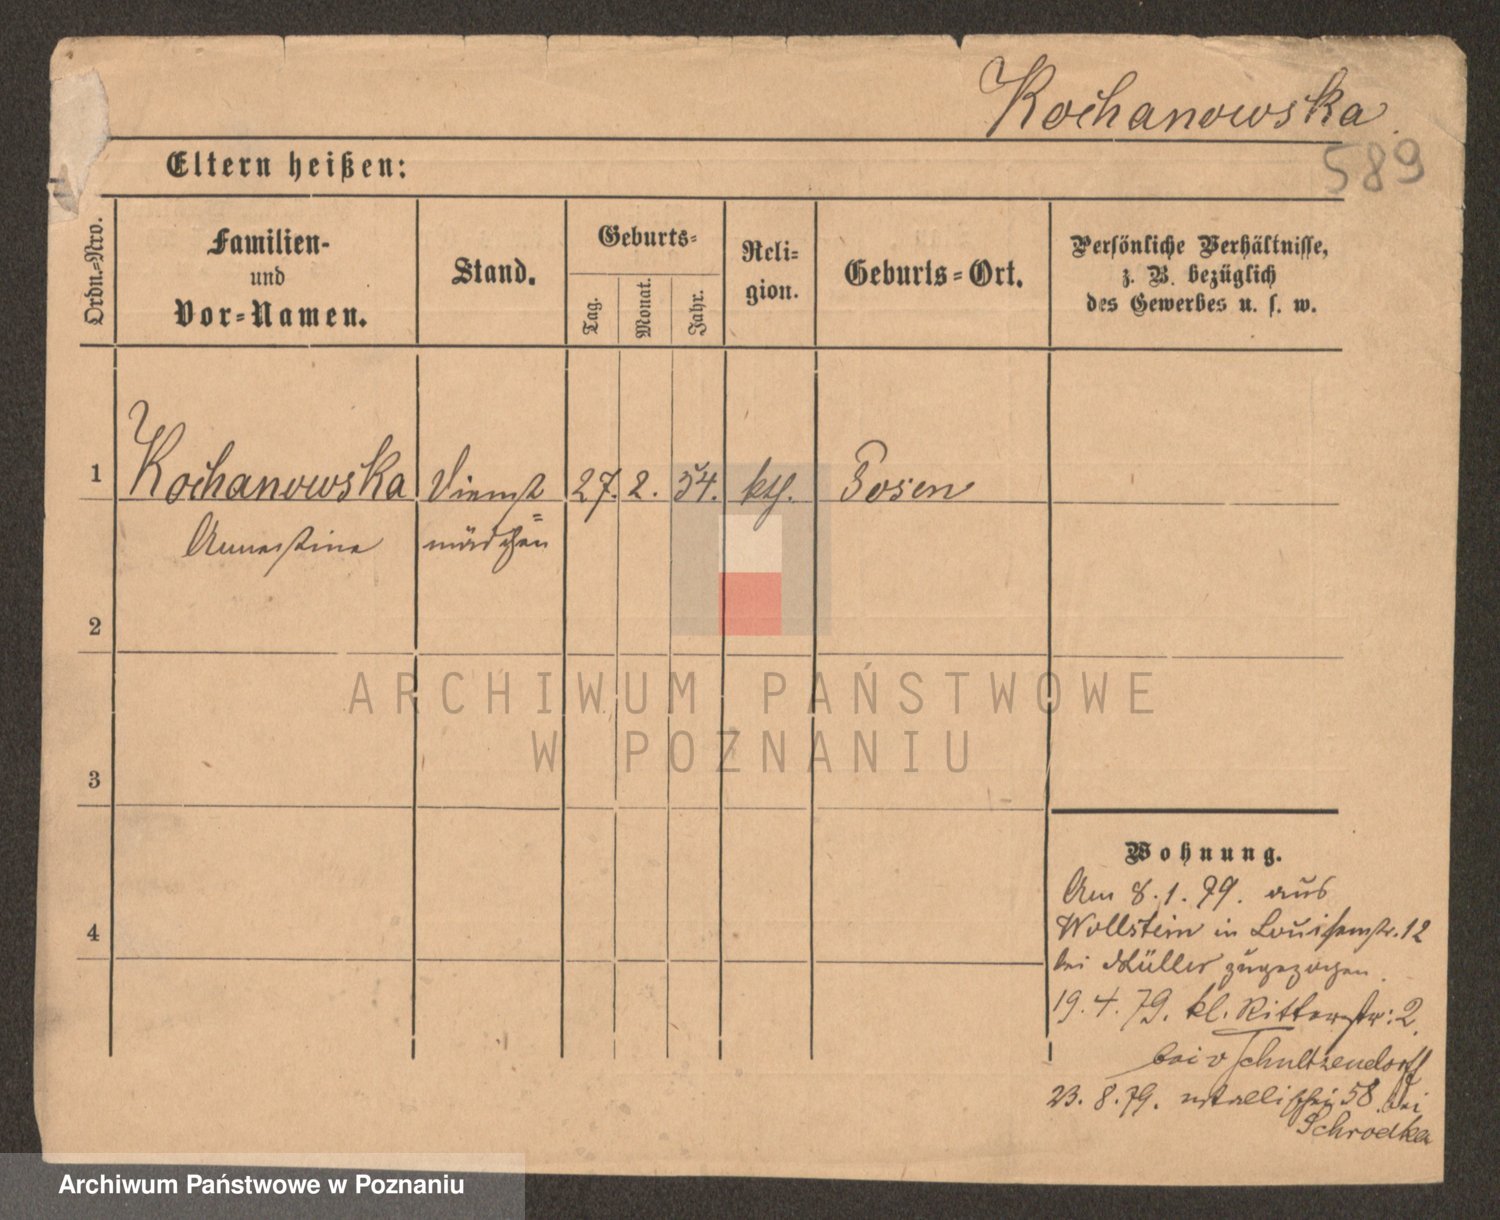 Kochanowska
589
Eltern heißen:
Ordn.=Nro.
Familien-
und
Vor=Namen.
Stand.
Geburts=
Tag.
Monat.
Jahr.
Reli=
gion.
Geburts=Ort.
Persönliche Verhältnisse,
z. B. bezüglich
des Gewerbes u. s. w.
1
Kochanowska
Dienst
27. 2. 54.
kth.
Posen
=
mädchen
2
ARCHIWUM PAŃSTWOWE
W POZNANIU
3
4
Wohnung.
Am 8. 1. 79. aus
Wollstein in Louisenstr. 12
bei Müller zugezogen.
19. 4. 79. kl. Ritterstr: 2.
bei v Schultzendorff
23. 8. 79. 58 bei
Schrödka
Archiwum Państwowe w Poznaniu